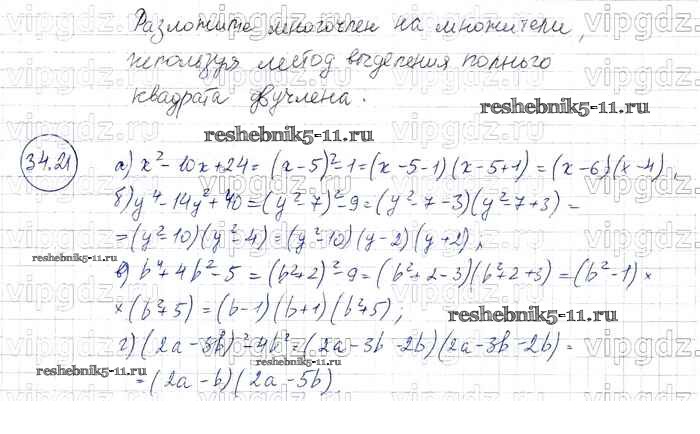 Разложите многочлен на множители,
используя метод выделения полного
квадрата двучлена.
reshebnik5-11.ru
reshebnik5-11.ru
34.21
а) x² - 10x + 24 = (x-5)² - 1 = (x-5-1)(x-5+1) = (x-6)(x-4),
б) y⁴ - 14y² + 40 = (y²-7)² - 9 = (y²-7-3)(y²-7+3) =
= (y²-10)(y²-4) = (y²-10)(y-2)(y+2);
reshebnik5-11.ru
в) b⁴ + 4b² - 5 = (b²+2)² - 9 = (b²+2-3)(b²+2+3) = (b²-1) ×
× (b²+5) = (b-1)(b+1)(b²+5);
reshebnik5-11.ru
г) (2a-3b)² - 4b² = (2a-3b-2b)(2a-3b-2b) =
reshebnik5-11.ru
reshebnik5-11.ru
= (2a-b)(2a-5b)
vipgdz.ru